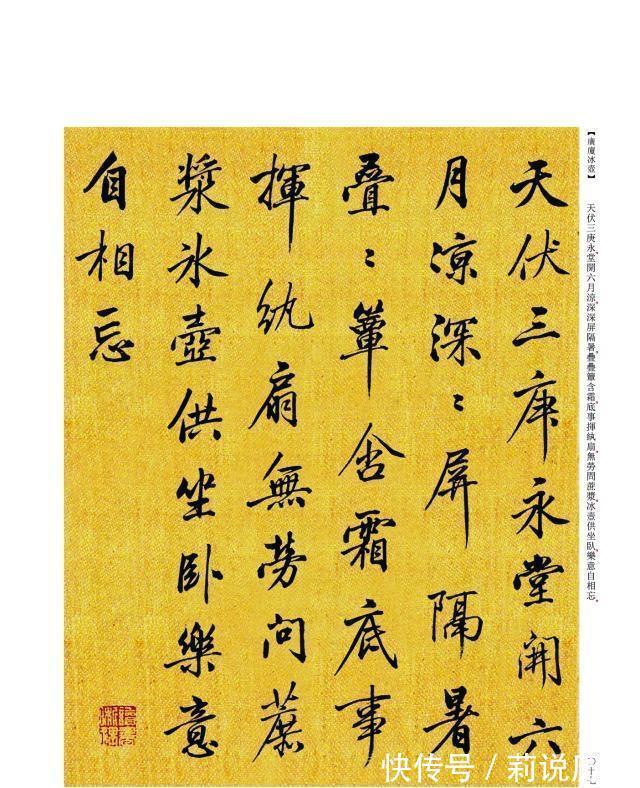 【廣廈冰壺】
天伏三庚永堂開六月涼深深屏隔暑疊疊簟含霜底事揮紈扇無勞問蔗漿冰壺供坐臥樂意自相忘
天伏三庚永堂開六
月涼深〻屏隔暑
叠〻簟含霜底事
揮紈扇無勞問蔗
漿氷壺供坐卧樂意
自相忘
快传号 / 莉说